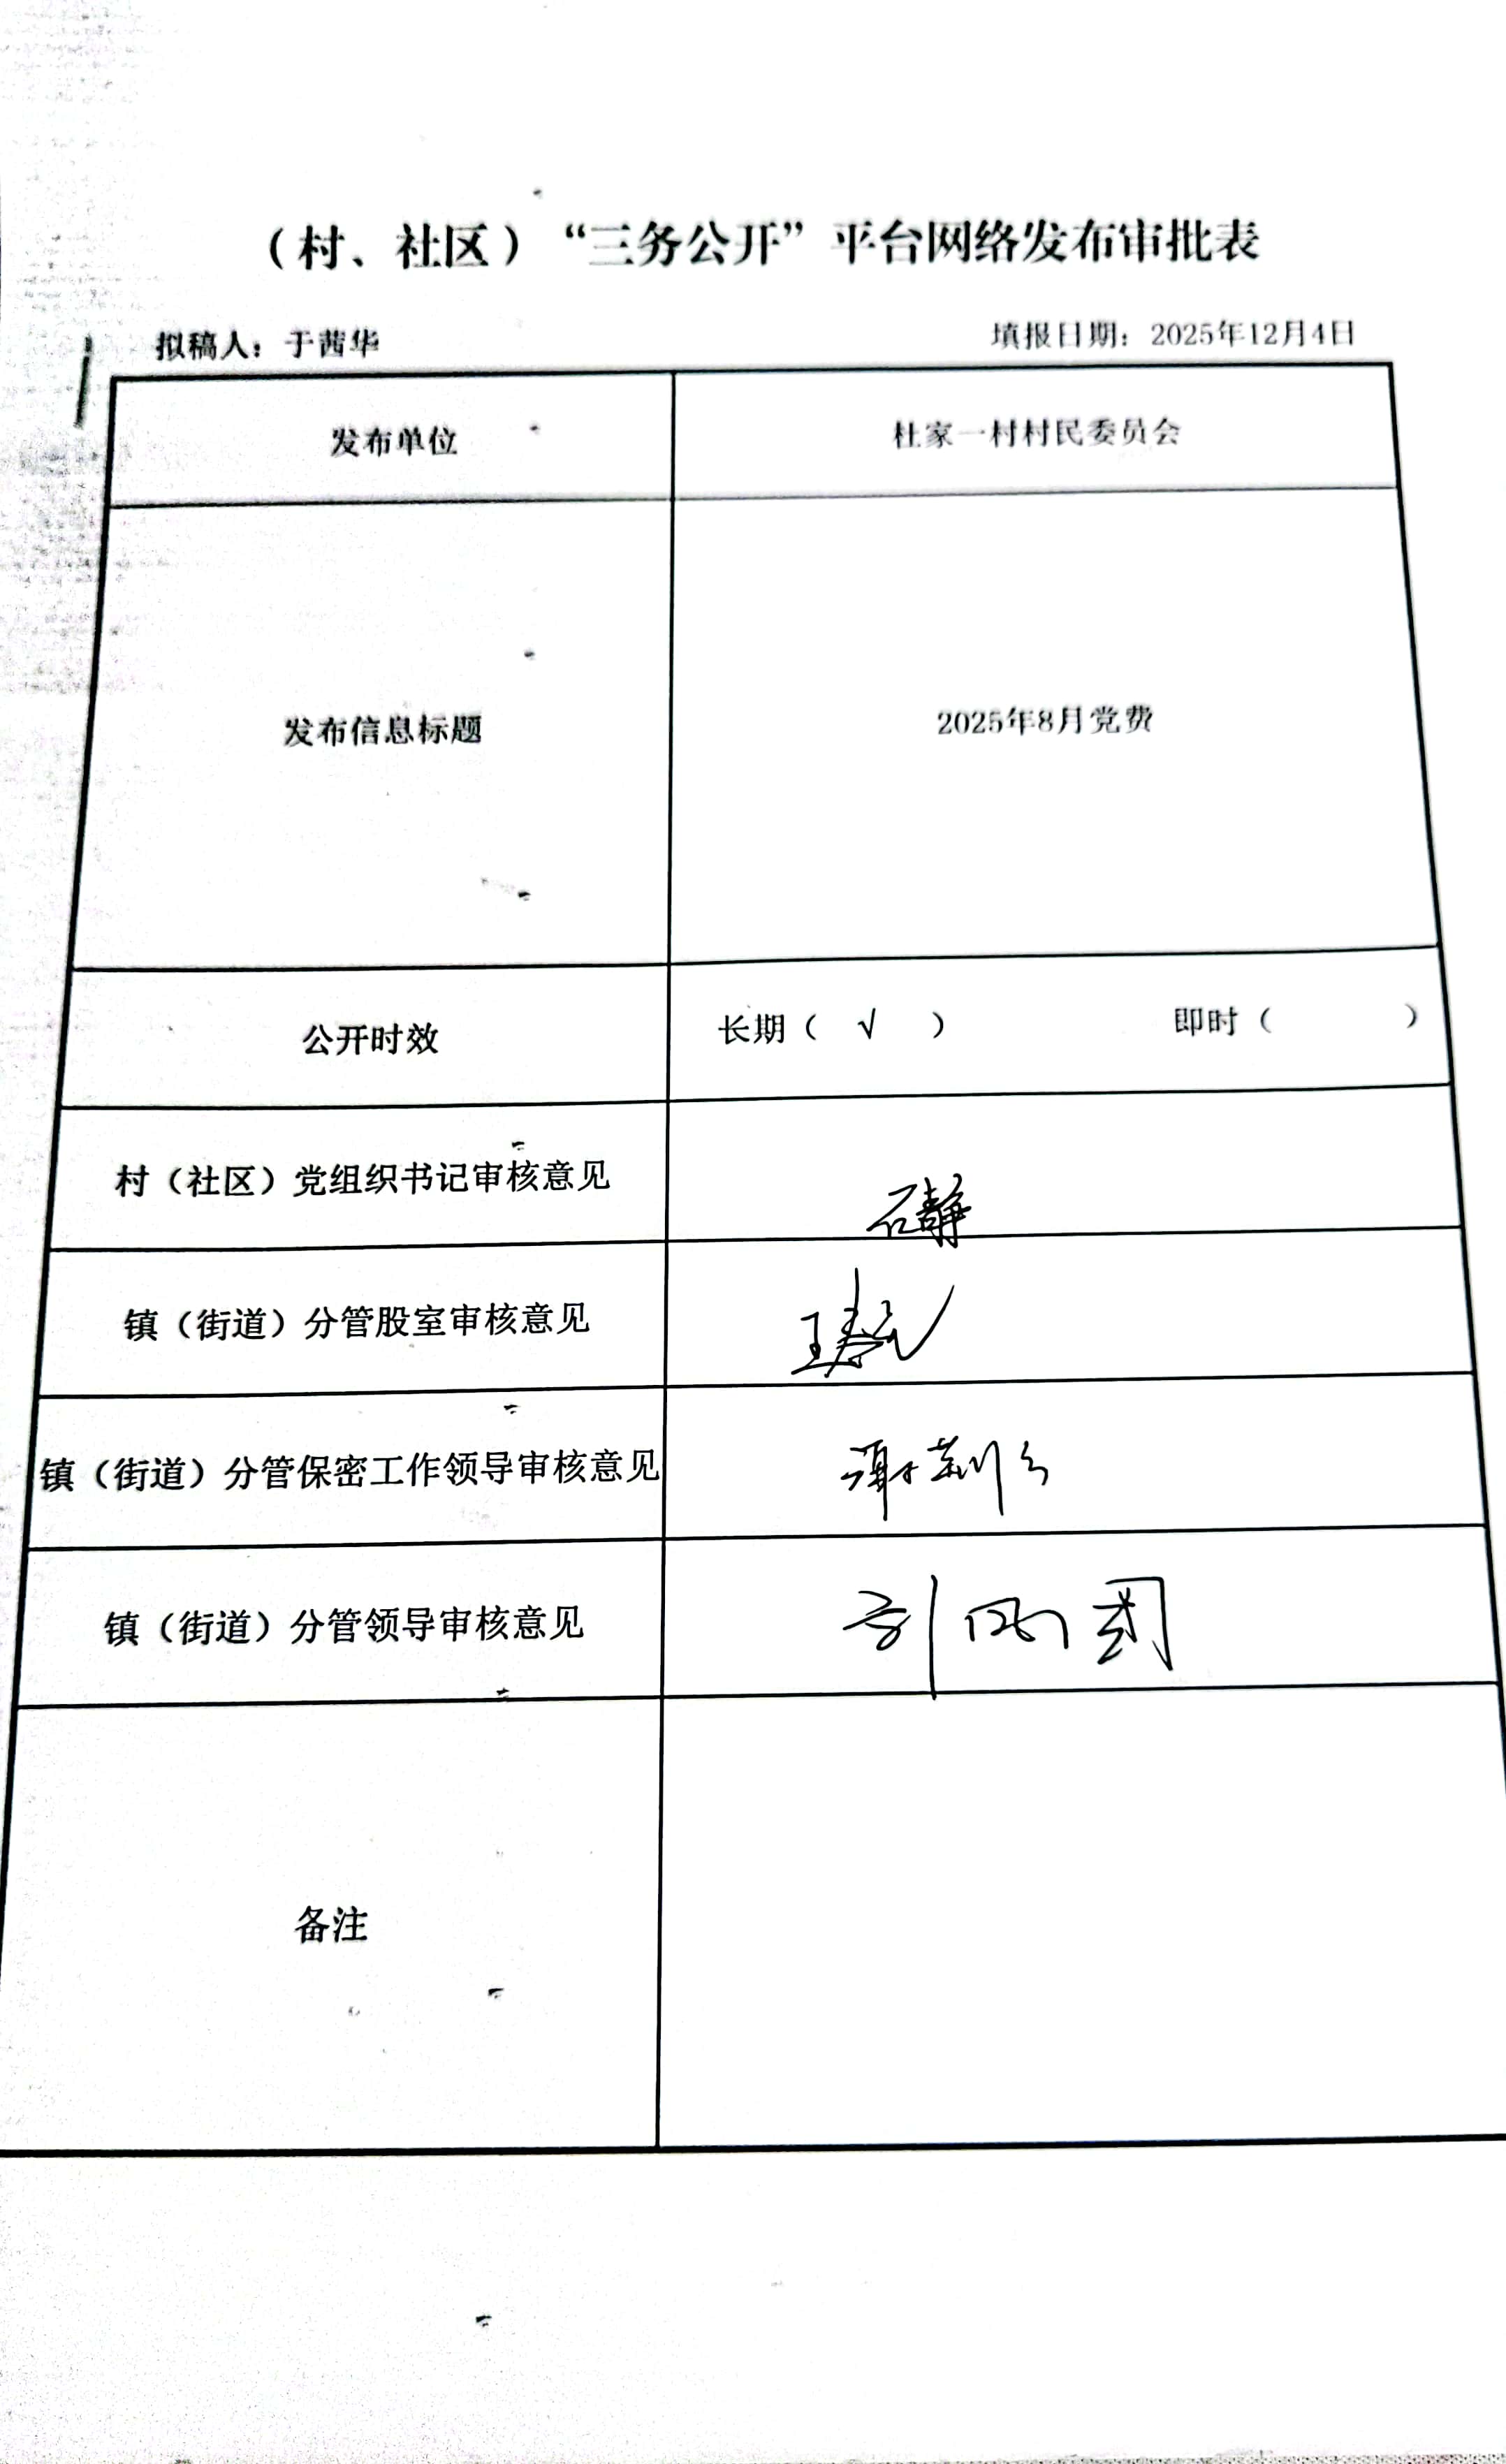 （村、社区）“三务公开”平台网络发布审批表
拟稿人：于茜华 填报日期：2025年12月4日
发布单位 杜家一村村民委员会
发布信息标题 2025年8月党费
公开时效 长期（ √ ） 即时（ ）
村（社区）党组织书记审核意见 石静
镇（街道）分管股室审核意见 王
镇（街道）分管保密工作领导审核意见 谢
镇（街道）分管领导审核意见 刘国
备注